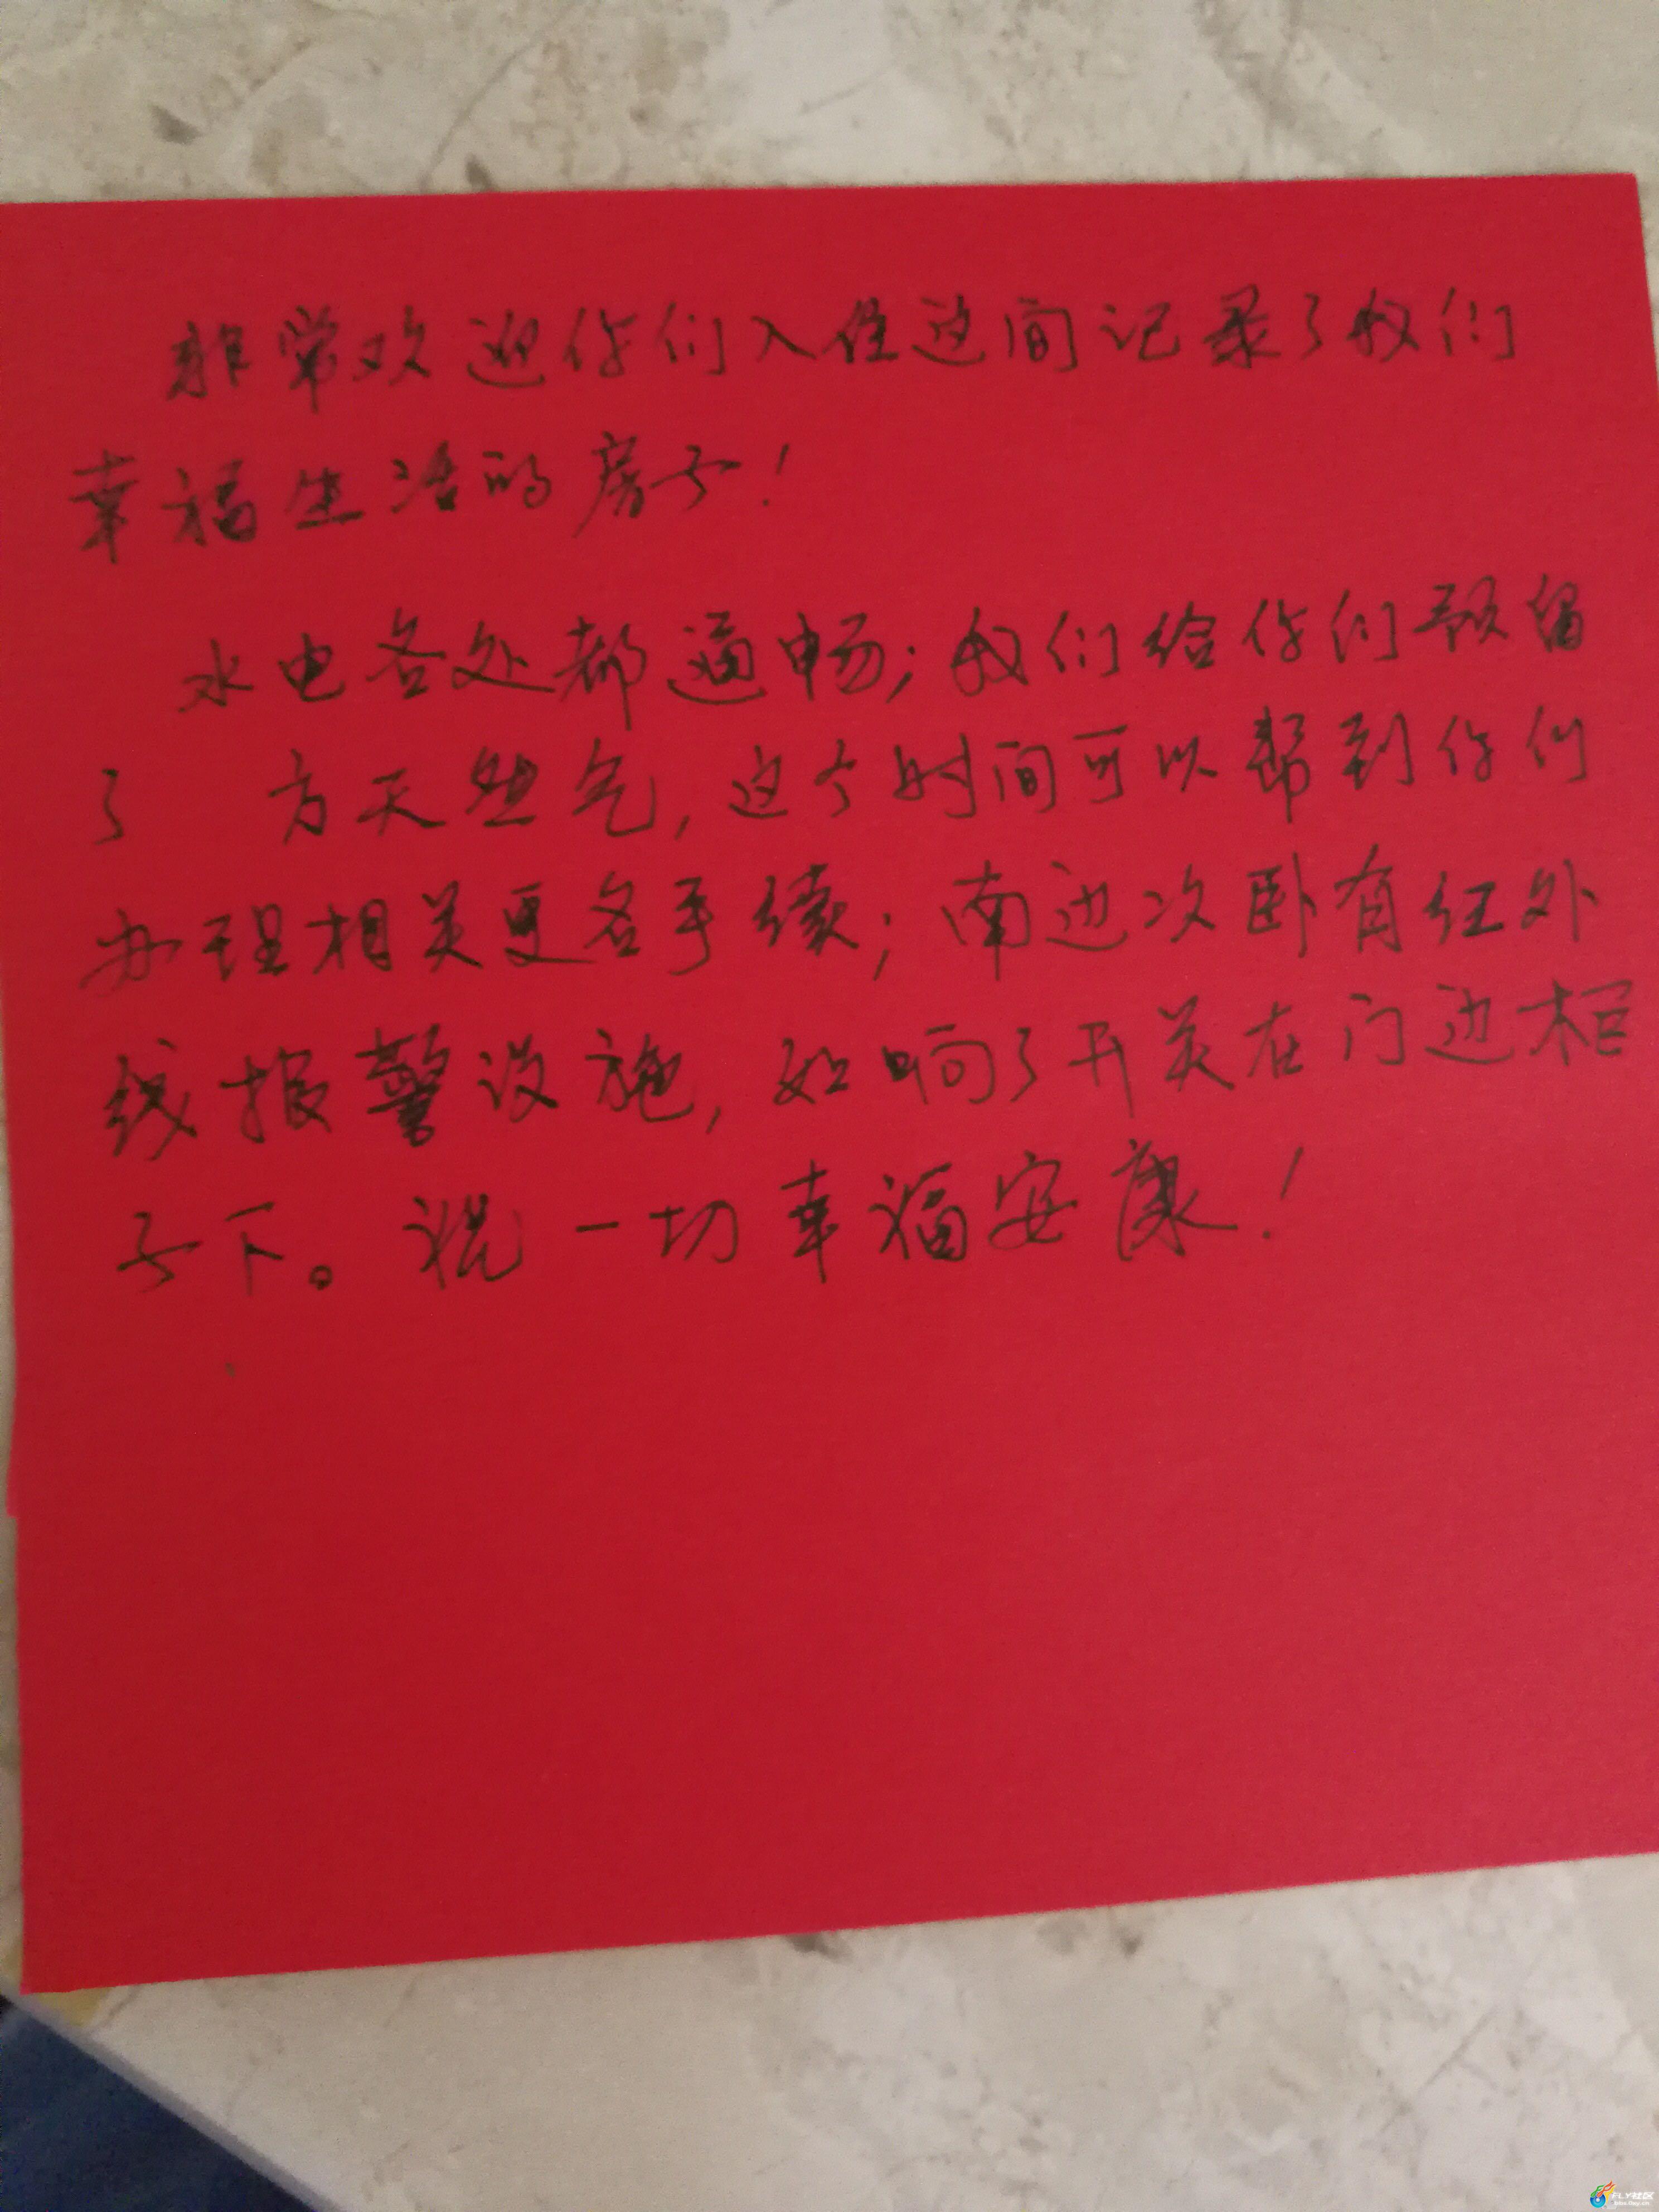 非常欢迎你们入住这间记录了我们
幸福生活的房子!
水电各处都通畅;我们给你们预留
了 方天然气,这个时间可以帮到你们
办理相关更名手续;南边次卧有红外
线报警设施,如响了开关在门边柜
子下。祝一切幸福安康!
FLY社区